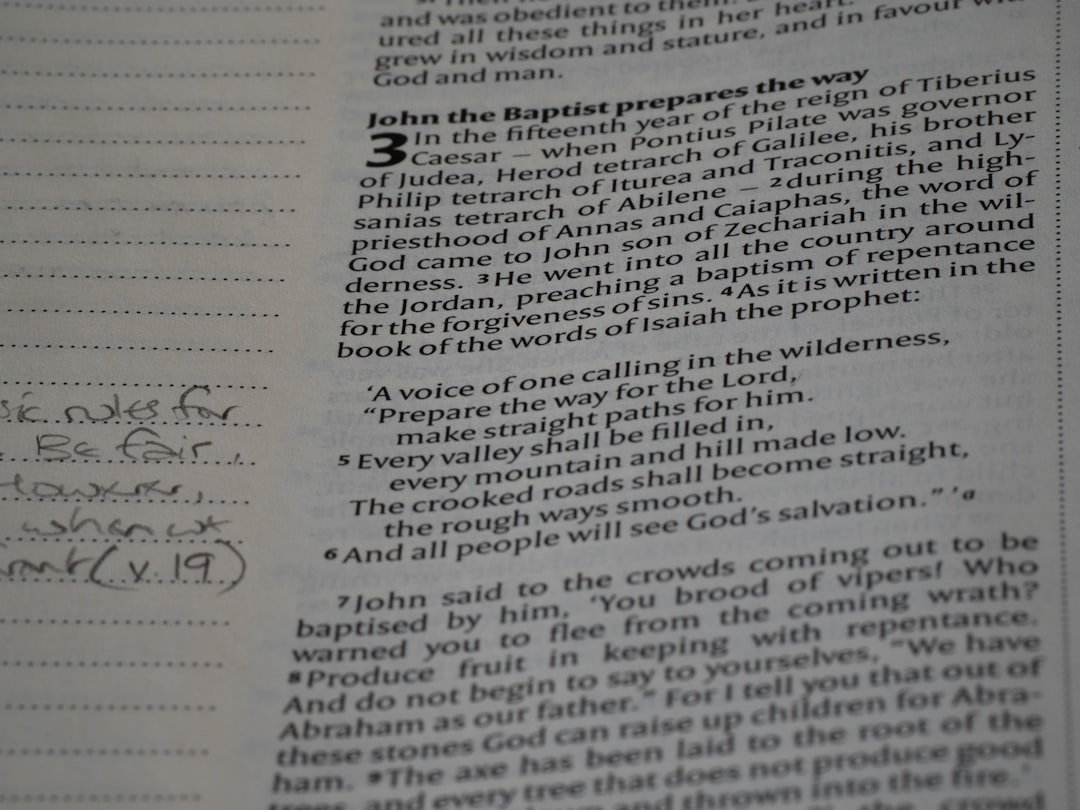 and was obedient to them.
ured all these things in her heart.
grew in wisdom and stature, and in favour with
God and man.
John the Baptist prepares the way
3 In the fifteenth year of the reign of Tiberius
Caesar – when Pontius Pilate was governor
of Judea, Herod tetrarch of Galilee, his brother
Philip tetrarch of Iturea and Traconitis, and Ly-
sanias tetrarch of Abilene – 2 during the high-
priesthood of Annas and Caiaphas, the word of
God came to John son of Zechariah in the wil-
derness. 3 He went into all the country around
the Jordan, preaching a baptism of repentance
for the forgiveness of sins. 4 As it is written in the
book of the words of Isaiah the prophet:
‘A voice of one calling in the wilderness,
“Prepare the way for the Lord,
make straight paths for him.
5 Every valley shall be filled in,
every mountain and hill made low.
The crooked roads shall become straight,
the rough ways smooth.
6 And all people will see God’s salvation.” ’ a
7 John said to the crowds coming out to be
baptised by him, ‘You brood of vipers! Who
warned you to flee from the coming wrath?
8 Produce fruit in keeping with repentance.
And do not begin to say to yourselves, “We have
Abraham as our father.” For I tell you that out of
these stones God can raise up children for Abra-
ham. 9 The axe has been laid to the root of the
trees, and every tree that does not produce good
and thrown into the fire.’
notes for
Be fair,
However,
(v.19)